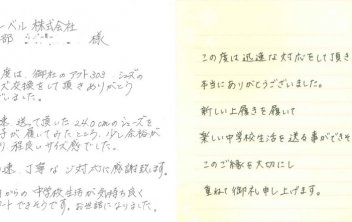 ーベル 株式会社
部 様
度は、御社のアクト303 シューズの
ズ交換をして頂きありがとう
いました。
速、送って頂いた24.0cmのシューズを
子が履いてみたところ、少し余裕が
り 程良いサイズ感でした。
速、丁寧なご対応に感謝致します。
からの 中学校生活が気持ち良く
ートできそうです。お世話になりました。
この度は迅速な対応をして頂き
本当にありがとうございました。
新しい上履きを履いて
楽しい中学校生活を送る事ができそ
このご縁を大切にし
重ねて御礼申し上げます。